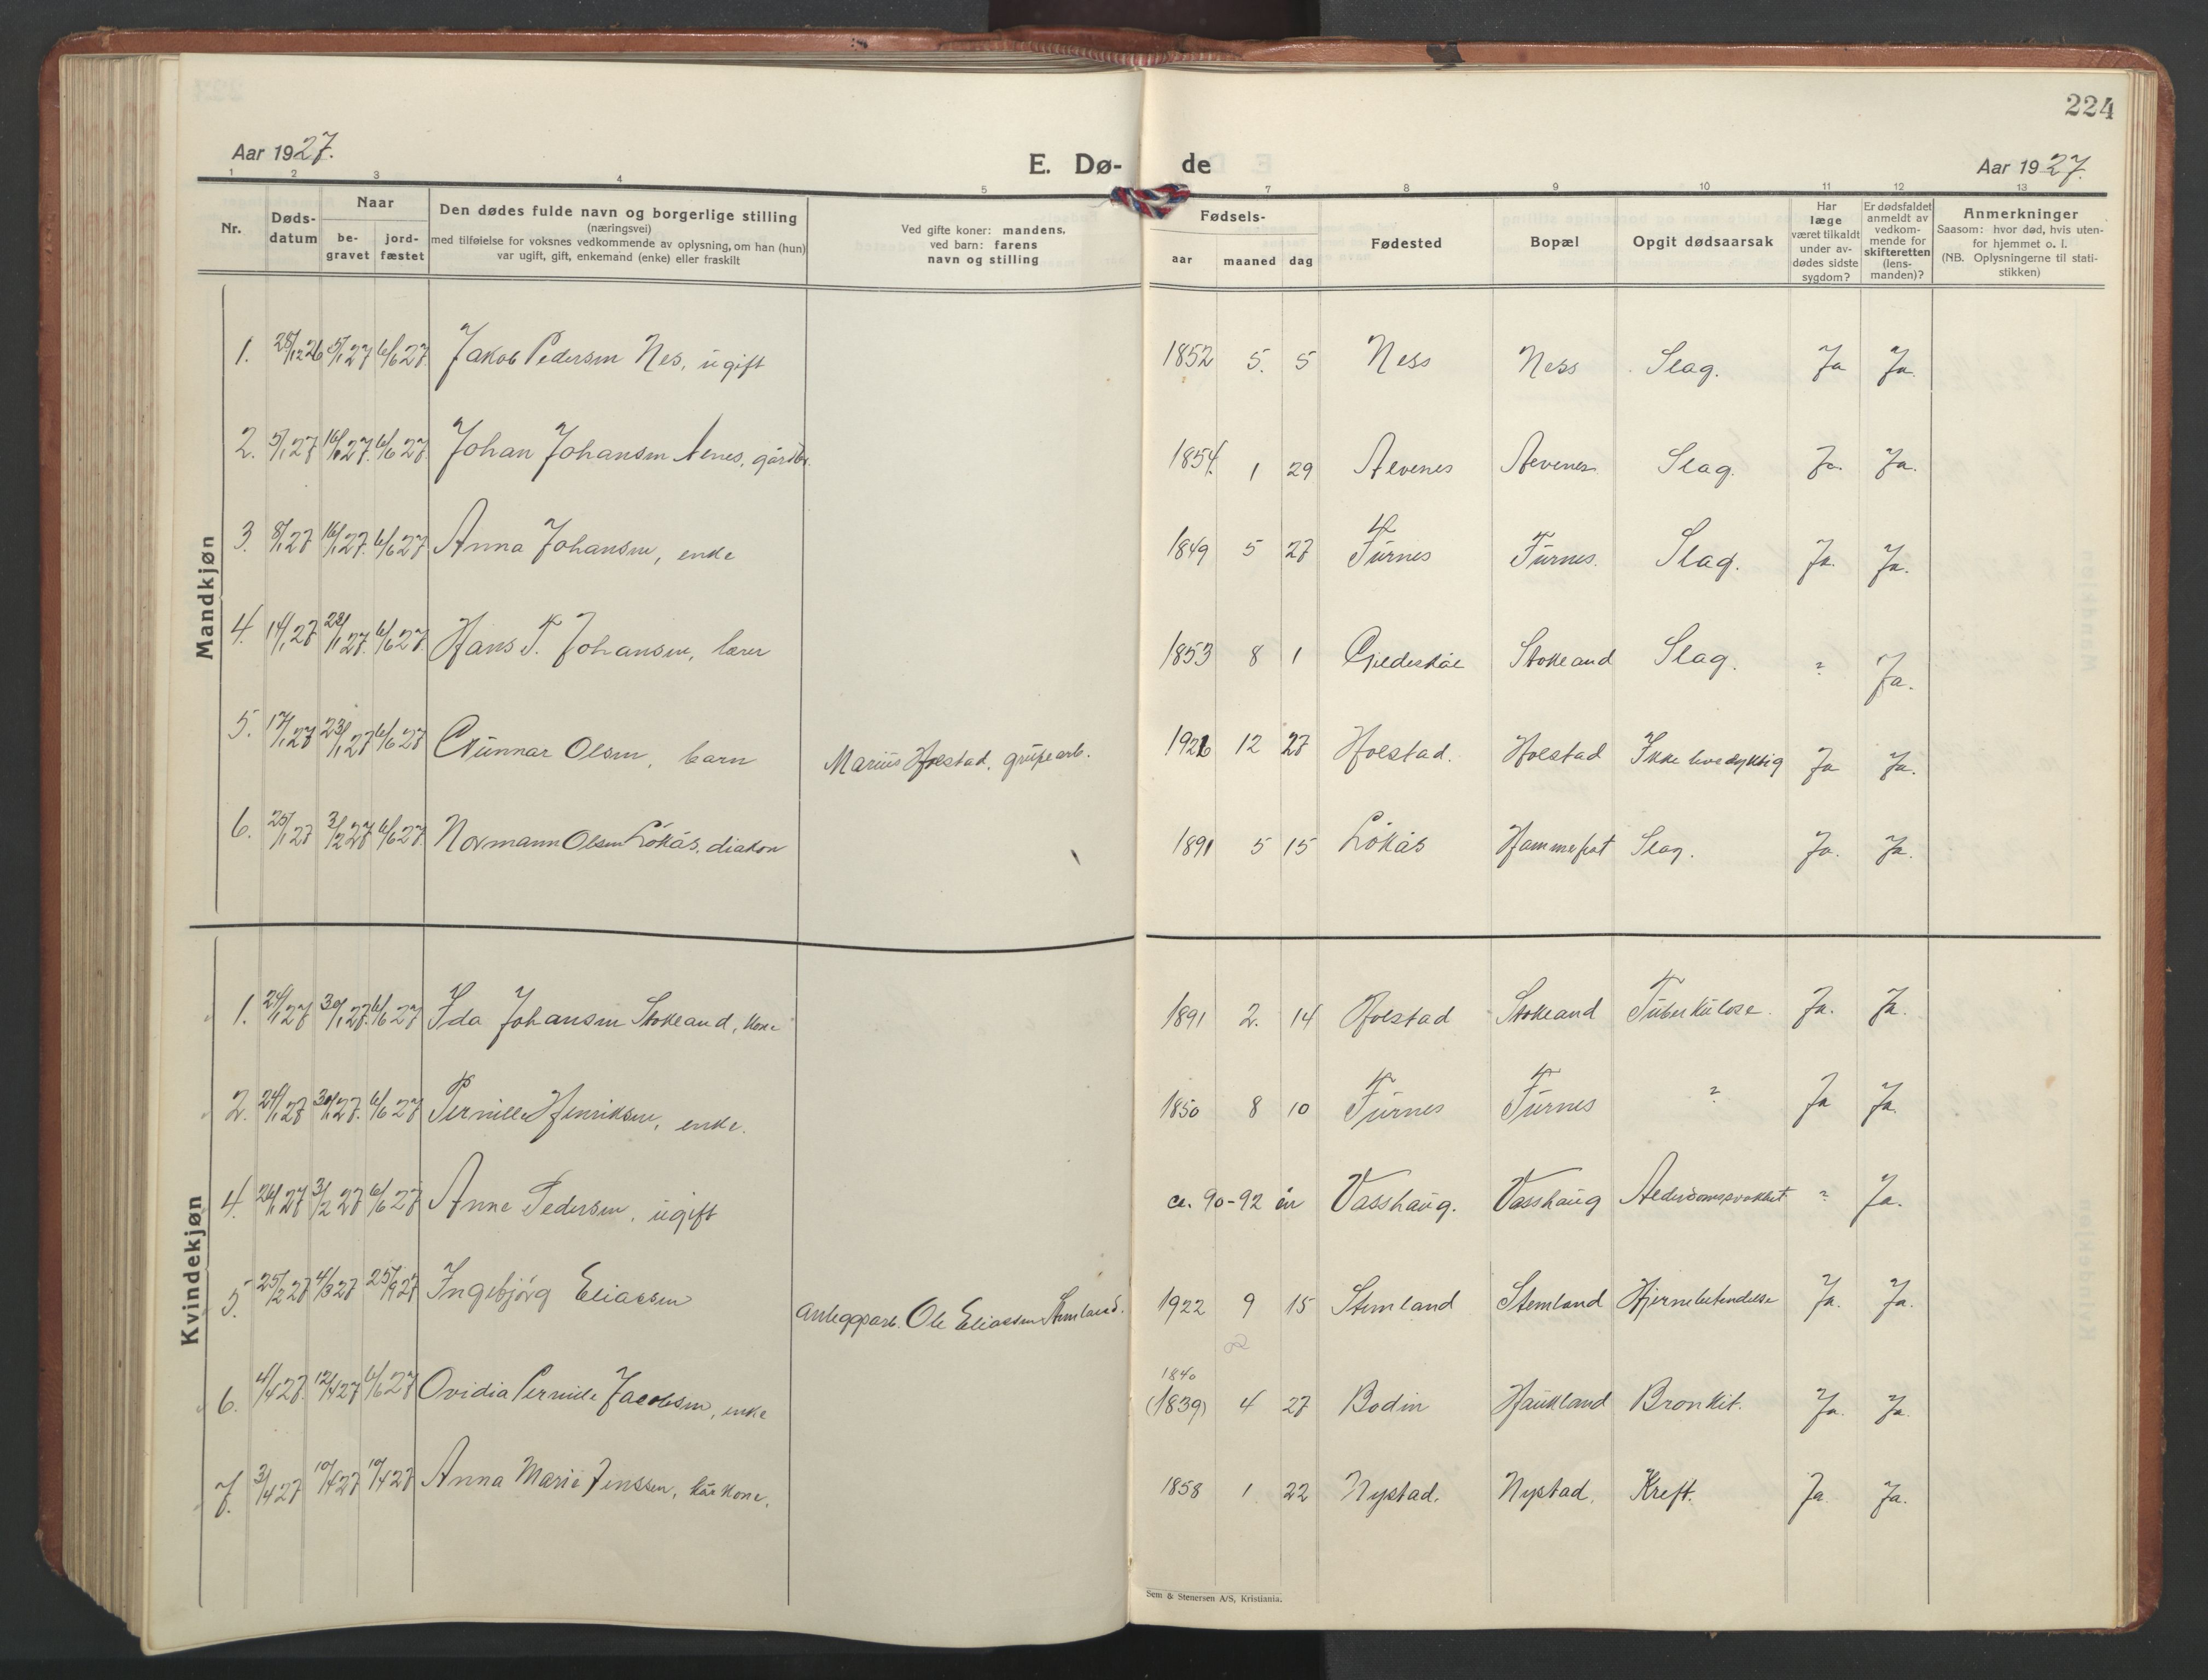 224
Aar 1927.
E. Dø- de
Aar 1927.
1 2 3 4 5 7 8 9 10 11 12 13
Nr.
Døds-
datum
Naar
be-
gravet
jord-
fæstet
Den dødes fulde navn og borgerlige stilling
(næringsvei)
med tilføielse for voksnes vedkommende av oplysning, om han (hun)
var ugift, gift, enkemand (enke) eller fraskilt
Ved gifte koner: mandens,
ved barn: farens
navn og stilling
Fødsels-
aar maaned dag
Fødested
Bopæl
Opgit dødsaarsak
Har
læge
været tilkaldt
under av-
dødes sidste
sygdom?
Er dødsfaldet
anmeldt av
vedkom-
mende for
skifteretten
(lens-
manden)?
Anmerkninger
Saasom: hvor død, hvis uten-
for hjemmet o. l.
(NB. Oplysningerne til stati-
stikken)
Mandkjøn
1. 28/12 26 5/1 27 6/6 27. Jakob Pedersen Nes, ugift 1852 5. 5 Ness Ness Slag. Ja Ja.
2. 5/1 27 16/1 27. 6/6 27. Johan Johansen gårdbr. 1854 1 29 Alvenes Alvenes Slag. Ja. Ja.
3. 8/1 27 16/1 27. 6/6 27 Anna Johansen, enke 1849 5 27 Furnes Furnes. Slag. Ja. Ja.
4. 14/1 27 22/1 27. 6/6 27. Hans T. Johansen, lærer 1853 8 1 Gildeskål Stokland Slag. ? Ja.
5. 17/1 27 23/1 27 6/6 27 Gunnar Olsen, barn Marius Holstad, grubearb. 1926 12 27 Holstad. Holstad Ikke livsdyktig Ja Ja.
6. 25/1 27 3/2 27 6/6 27. Normann Olsen Løkås, diakon 1891 5 15 Løkås Hammerfest Slag. Ja. Ja.
Kvindekjøn
1. 24/1 27 30/1 27. 6/6 27 Ida Johansen Stokland, kone 1891 2. 14 Holstad Stokland Tuberkulose. Ja. Ja.
2. 24/1 27 30/1 27. 6/6 27 Pernille Henriksen, enke. 1850 8 10 Furnes Furnes ? Ja Ja.
4. 26/1 27 3/2 27 6/6 27 Anne Pedersen, ugift ca. 90-92 år Vasshaug. Vasshaug Alderdomssvakhet ? Ja.
5. 25/2 27 4/3 27 25/9 27 Ingebjørg Eliassen Anleggsarb. Ole Eliassen Stemland. 1922 9 15 Stemland Stemland Hjernebetendelse Ja. Ja.
6. 4/4 27. 12/4 27 6/6 27 Ovidia Pernille Jacobsen, enke 1840 (1839) 4 27 Bodin Haukland Bronkit. Ja. Ja.
7. 3/4 27 10/4 27 10/4 27 Anna Marie Jenssen, kårkone. 1858 1 22 Nystad. Nystad. Kreft. Ja Ja.
Sem & Stenersen A/S, Kristiania.